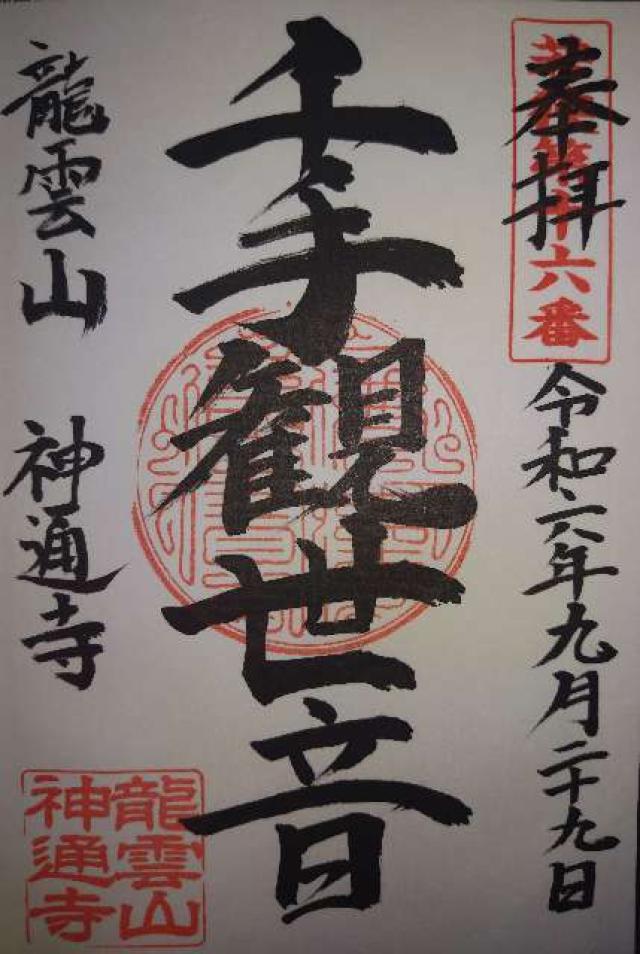 奉拝
第十六番
令和六年九月二十九日
千手観世音
龍雲山 神通寺
龍雲山
神通寺